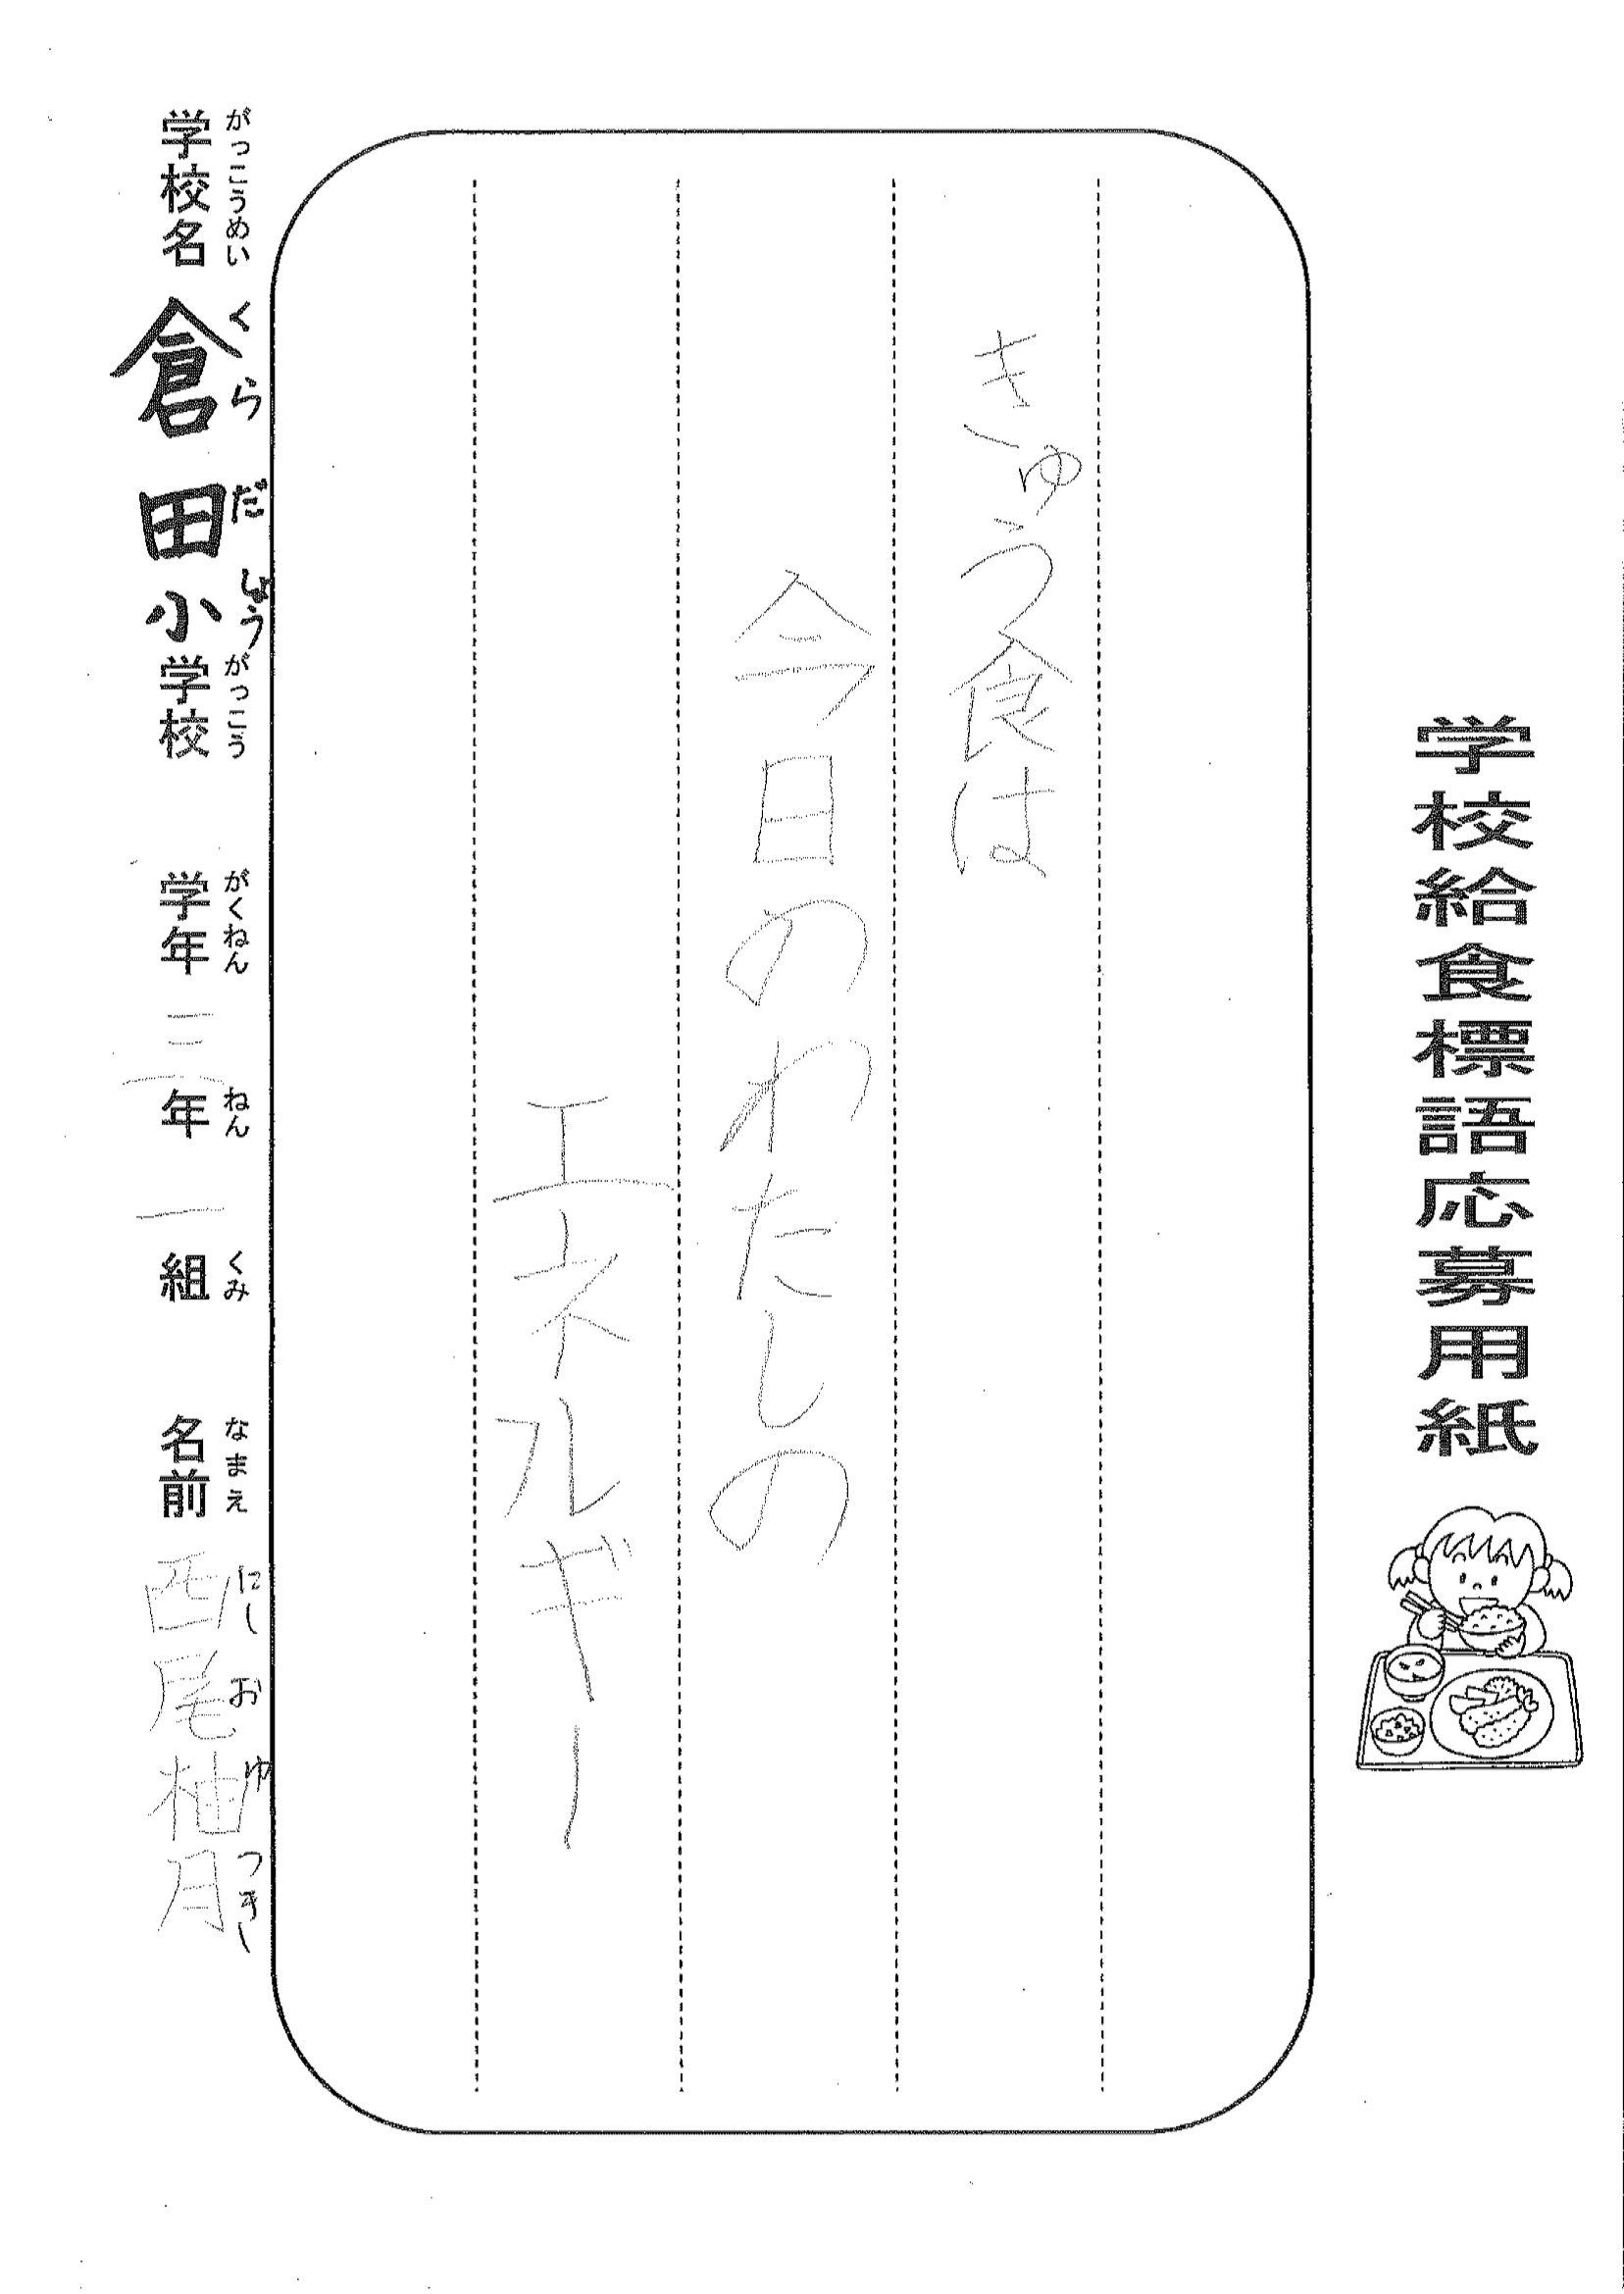 学校給食標語応募用紙
きゅう食は
今日のわたしの
エネルギー
がっこうめい くらだしょう がっこう がくねん ねん くみ なまえ にしお ゆつき
学校名 倉田小学校 学年 三年 一組 名前 西尾柚月